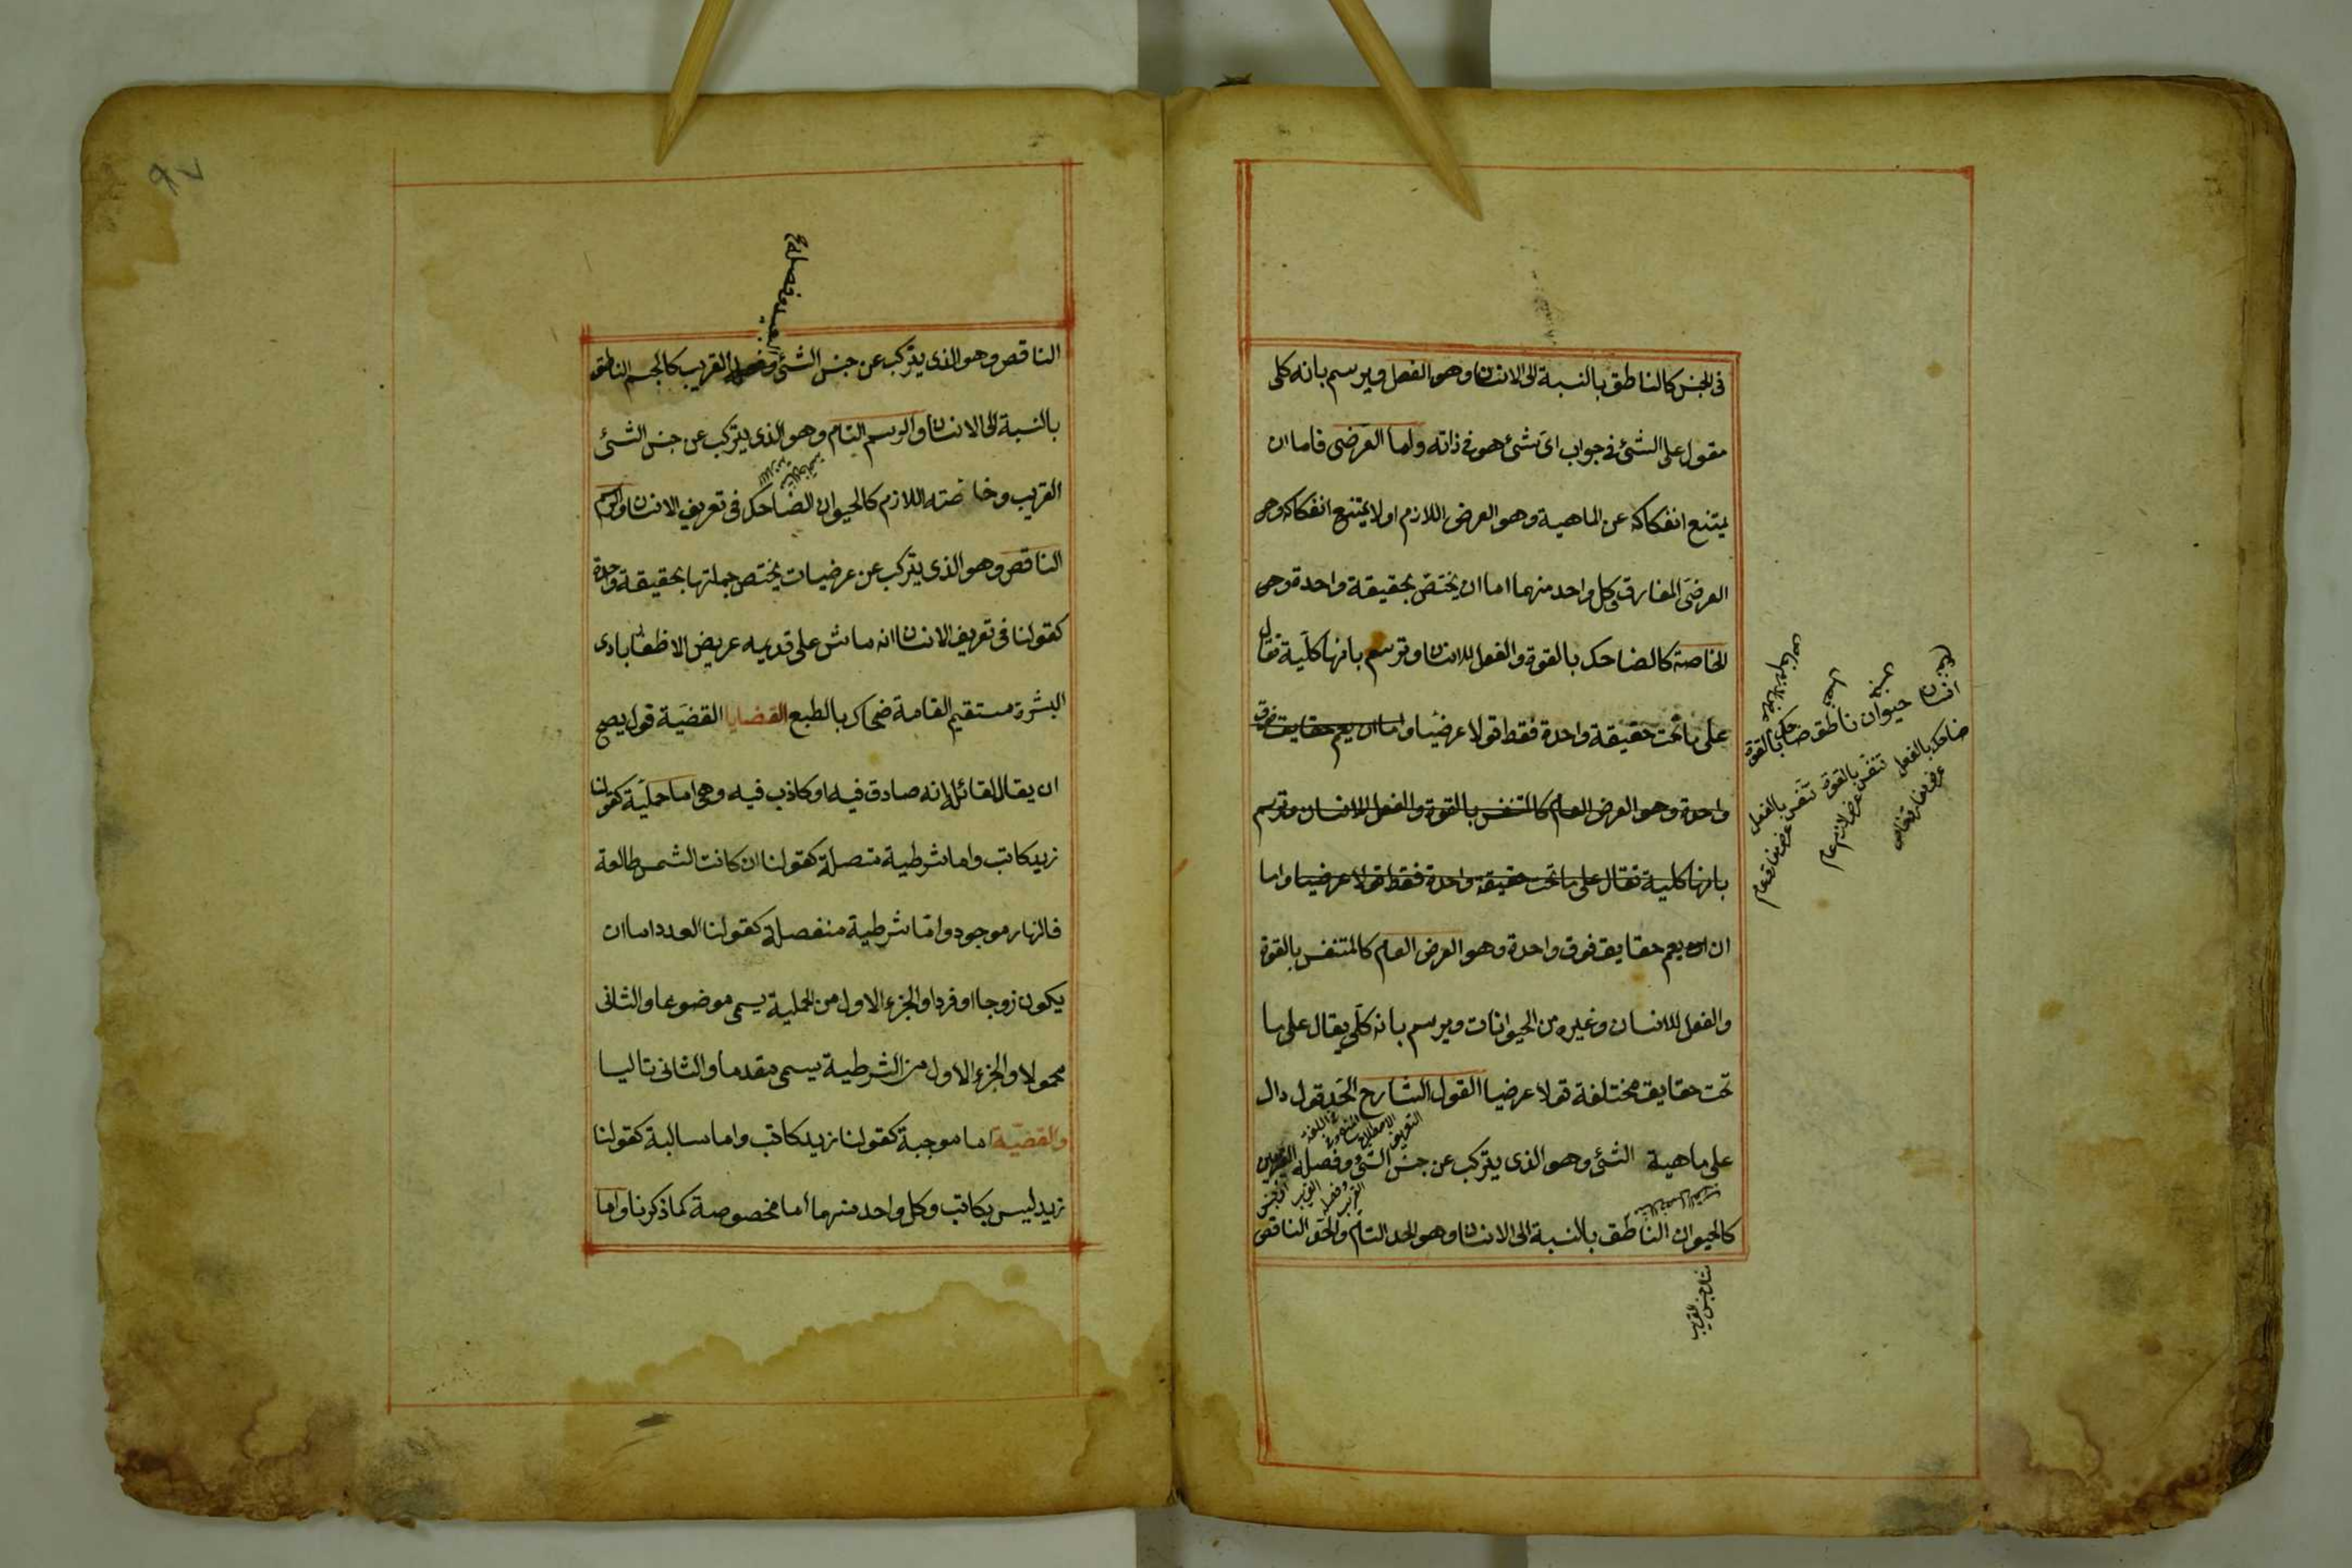 فى الجنس كالناطق بالنسبة الى الانسان وهو الفصل ويرسم بانه كلى
مقول على الشئ فى جواب اى شئ هو فى ذاته واما العرضى فاما ان
يمتنع انفكاكه عن الماهية وهو العرض اللازم او لا يمتنع انفكاكه وهو
العرضى المفارق وكل واحد منهما اما ان يختص بحقيقة واحدة وهى
الخاصة كالضاحك بالقوة والفعل للانسان وترسم بانها كلية تقال
على ما تحت حقيقة واحدة فقط قولا عرضيا واما ان يعم حقايق فوق
واحدة وهو العرض العام كالمتنفس بالقوة والفعل للانسان وترسم
بانها كلية تقال على ما تحت حقيقة واحدة فقط قولا عرضيا واما
ان يعم حقايق فوق واحدة وهو العرض العام كالمتنفس بالقوة
والفعل للانسان وغيره من الحيوانات ويرسم بانه كلى يقال على ما
تحت حقايق مختلفة قولا عرضيا القول الشارح الحد قول دال
على ماهية الشئ وهو الذى يتركب عن جنس الشئ وفصله القريبين
كالحيوان الناطق بالنسبة الى الانسان وهو الحد التام والحد الناقص
انسان حيوان ناطق ضاحك بالقوة
ضاحك بالفعل تنفس بالقوة تنفس بالفعل
عرض مفارق خاص
عرض لازم عام
عرض مفارق عام
مثال جنس القريب
٩٧
الناقص وهو الذى يتركب عن جنس الشئ وفصله القريب كالجسم الناطق
بالنسبة الى الانسان والرسم التام وهو الذى يتركب عن جنس الشئ
القريب وخاصته اللازم كالحيوان الضاحك فى تعريف الانسان والرسم
الناقص وهو الذى يتركب عن عرضيات يختص جملتها بحقيقة واحدة
كقولنا فى تعريف الانسان انه ماش على قدميه عريض الاظفار بادى
البشرة مستقيم القامة ضحاك بالطبع القضايا القضية قول يصح
ان يقال لقائله انه صادق فيه او كاذب فيه وهى اما حملية كقولنا
زيد كاتب واما شرطية متصلة كقولنا ان كانت الشمس طالعة
فالنهار موجود واما شرطية منفصلة كقولنا العدد اما ان
يكون زوجا او فردا والجزء الاول من الحملية يسمى موضوعا والثانى
محمولا والجزء الاول من الشرطية يسمى مقدما والثانى تاليا
والقضية اما موجبة كقولنا زيد كاتب واما سالبة كقولنا
زيد ليس بكاتب وكل واحد منهما اما مخصوصة كما ذكرنا واما